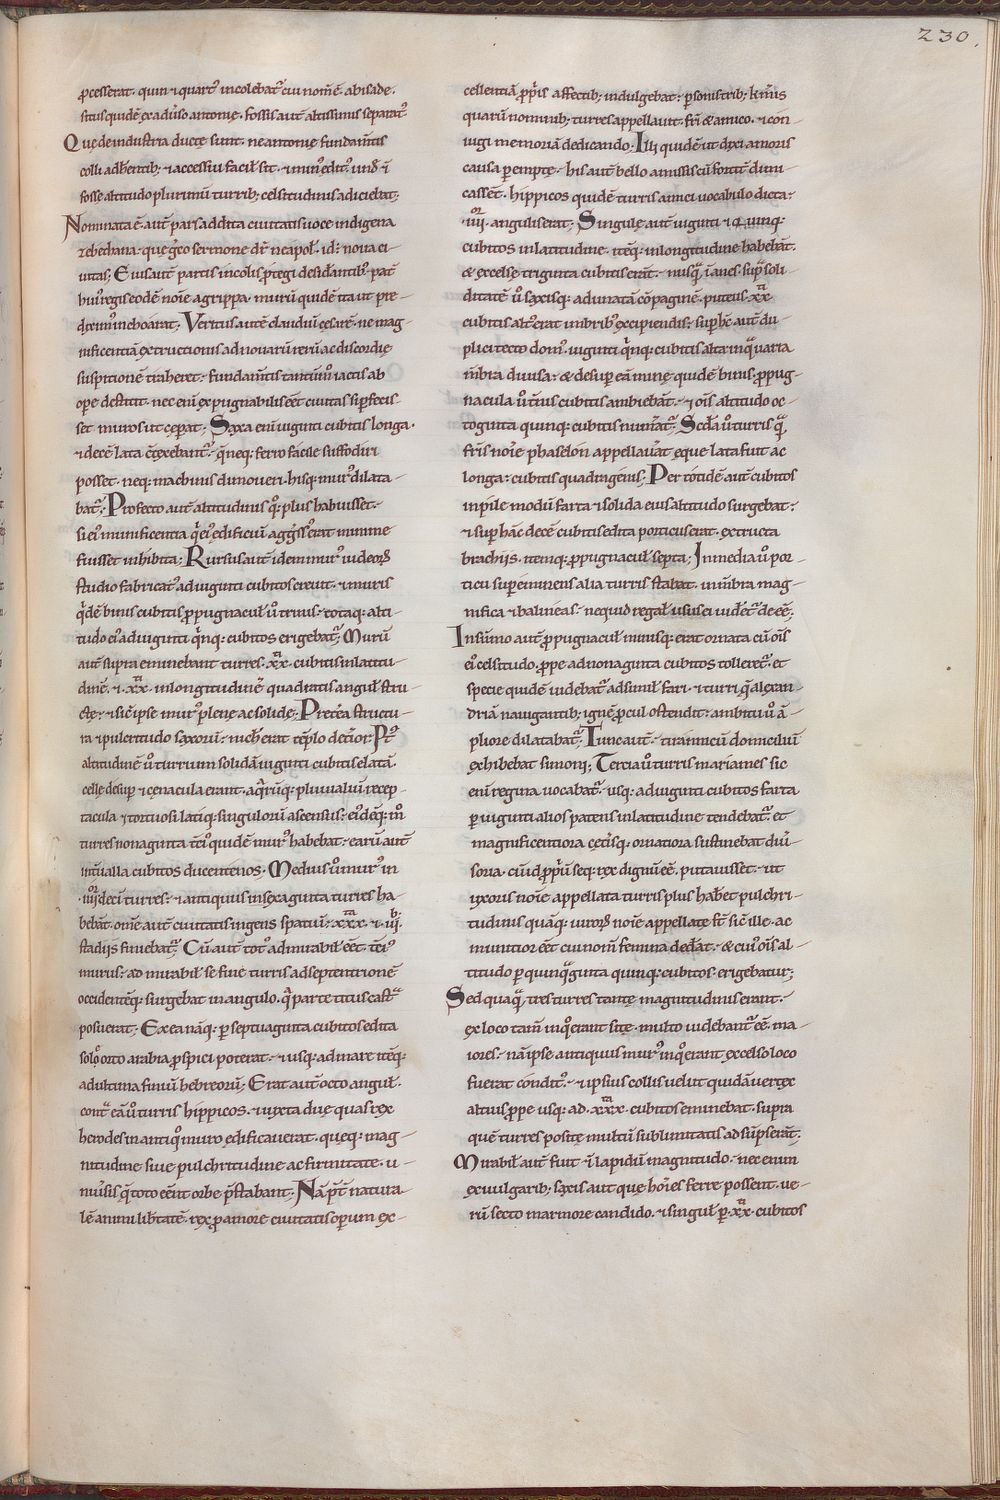 230.
ꝓcesserat. quin ⁊ quart᷒ incolebat᷑ cui nom̄ ē. abisade.
situs quidē ex aduso antonie. fossis aut̄ altissimis separat᷑
Que de industria ducte sunt. ne antonie fundam̄tis
colli adherentib; ⁊ accessui facil̄ sit. ⁊ min᷒ edit᷒. und̄ ⁊̄
fosse altitudo plurimū turrib; celsitudinis adiciebat;
Nominata ē. aut̄ pars addita ciuitati uoce indigena
zebethana. que g̊co sermone dr̄ neapol̄. id÷ noua ci-
uitas; Eius aut̄ partis incolis ꝓtegi desidantib᷒. pat̄
hui᷒ regis eodē noīe agrippa. murū quidē ita ut pre-
dixim᷒ incboarat; Veritus autē claudiū cesarē. ne mag-
nificentiā extructionis ad nouarū rerū ac discordie
suspitionē traheret. fundam̄tis tantūm̊ iactis ab
ope destitit. nec eni expugnabilis eēt ciuitas si ꝑfecis-
set muros ut ceperat; Saxa eni uiginti cubitis longa.
⁊ decē lata ctexebant᷑. q̄neq; ferro facile suffodiri
posset. neq; machinis dimoueri. hisq; mur᷒ dilata-
bat᷑; Profecto aut̄ altitudinis q̊. plus habuisset.
si ei᷒ munificentia q̇ ei᷒ edificiū aggssˀerat minime
fuisset inhibita; Rursus aut̄ idem mur᷒ iudeoꝝ
studio fabricat᷒ ad uiginti cubitos creuit. ⁊ muris
q̇dē binis cubitis ꝓpugnacul̄ ů trinis. totaq; alti-
tudo ei᷒ ad uiginti q̄nq; cubitos erigebat᷑; Murū
aut̄ supra eminebant turres. xx. cubitis in latitu-
dinē. ⁊ xx. in longitudinē quadratis angul̄ stru-
cte. ⁊ sic̄ ipse mur᷒ plene ac solide; Pretea structu-
ra ⁊ pulcritudo saxorū. nich̄ erat tēplo detior; P᷒t
altitudinē ů turrium solidā uiginti cubitis elatā.
celle desuꝑ ⁊ cenacula erant. aq̄rūq; pluuialiū recep-
tacula ⁊ tortuosi latiq; singulorū ascensus. ei᷒dēq; m̊
turres nonaginta tcī᷒ quidē mur᷒ habebat. earū aut̄
int̄ualla cubitos ducentenos. Medius ů mur᷒ in
.iiiior. deci turres. ⁊ antiquus in sexaginta turres ha
bebat. omē aut̄ ciuitatis ingens spatiū. xxx. ⁊ .iiib.
stadijs finiebat᷑; Cū aut̄ tot᷒ admirabil̄ eēt. tci᷒
murus. ad mirabil̄ se fine turris ad septentrionē
occidentēq; surgebat in angulo. q̄ parte titus castā
posuerat; Ex ea nāq; ꝑ septuaginta cubitos edita
solo orto arabia ꝑspici poterat. ⁊ usq; ad mare itēq;
ad ultima finiū hebreorū; Erat aut̄ octo angul̄.
contᵃ eā ů turris hippicos. ⁊ iuxta due quas rex
herodes in antiq̊ muro edificauerat. queq; mag-
nitudine siue pulchritudine ac firmitate. u-
niūsis q̄ toto eēnt orbe p̄stabant; Nā p̄t natura
lē animi lib̄tatē. rex ꝓ amore ciuitatis operum ex-
cellentiā ꝓpˀis affectib; indulgebat. ꝑsonis trib; kmˀis
quarū nominib; turres appellauit. fri ⁊ amico. ⁊ con-
iugi memoriā dedicando; Illi quidē ut dxi amoris
causa ꝑempte. his aut̄ bello amissis cū fortit̄ dimi-
cassent. hippicos quidē turris amici uocabulo dicta.
.iiiior. angulis erat; Singule aut̄ uiginti ⁊ quinq;
cubitos in latitudine. itēq; in longitudine habebāt.
& excelse triginta cubitis erāt. nusq̄ īanes. supᵃ soli-
ditatē ů saxisq; adunatā cōpaginē. puteus xx
cubitis alt᷒ erat imbrib᷒ excipiendis. suꝑ hˀc aut̄ du-
plici tecto dom᷒. uiginti q̄nq; cubitis alta inq̄ uaria
m̄bra diuisa. & desuꝑ eā mine quidē binis. ꝓpug-
nacula ů tˀnis cubitis ambiebāt. ⁊ oīs altitudo oc-
toginta quinq; cubitis num̄at᷑; Scd̄a ů turris q̄
frīs noīe phaselon appellauˀat eque lata fuit ac
longa. cubitis quadragenis; Per totidē aut̄ cubitos
in pile modū farta ⁊ solida eius altitudo surgebat.
⁊ suꝑ hāc decē cubitis edita porticus erat. extructa
brachijs. itemq; ꝓpugnacul̄ septa; In media ů por-
ticu suꝑeminens alia turris stabat. in m̄bra mag-
nifica ⁊ balineas. ne quid regal̄ usus ei uidˀet᷑ de eē;
In sūmo aut̄ ꝓpugnacul̄ minisq; erat ornata cū oīs
ei᷒ celsitudo. ꝓpe ad nonaginta cubitos tolleret᷑. et
specie quidē uidebat᷑ adsimil̄ fari. ⁊ turri q̄ alexan-
driā nauigantib; ignē ꝓcul ostendit. ambitu ů ā-
pliore dilatabat᷑; Tunc aut̄. tirannicū domiciliū
exhibebat simoni; Tercia ů turris mariames sic
eni regina uocabat᷑. usq; ad uiginti cubitos farta
ꝑ uiginti alios patens in latitudine tendebat᷑. et
magnificentiora cetˀisq; ornatiora sustinebat diuˀ
soria. cū id ꝓpˀū seq; rex dignū eē. putauisset. ut
uxoris noīe appellata turris plus hab̄et pulchri-
tudinis quāq; uiroꝝ noīe appellate st̄ sic̄ ille. ac
munitior eēt cui nom̄ femina dedˀat. & cui᷒ oīs al-
titudo ꝑ quinq̄ginta quinq; cubitos erigebatur;
Sed quaq̄ tres turres tante magnitudinis erant.
ex loco tam̄ in q̊ erant site. multo uidebant᷑ eē. ma-
iores. nā ipse antiquus mur᷒ in q̊ erant excelso loco
fuerat condit᷒. ⁊ ipsius collis uelut quidā uertex
altius ꝓpe usq; ad. xxx. cubitos eminebat. supra
quē turres posite multū sublimitatis adsūpserāt.
Mirabil̄ aut̄ fuit ⁊ lapidū magnitudo. nec enim
ex uulgarib; saxis aut que hoīes ferre possent. ue-
rū secto marmore candido. ⁊ singul̄ ꝑ xx. cubitos